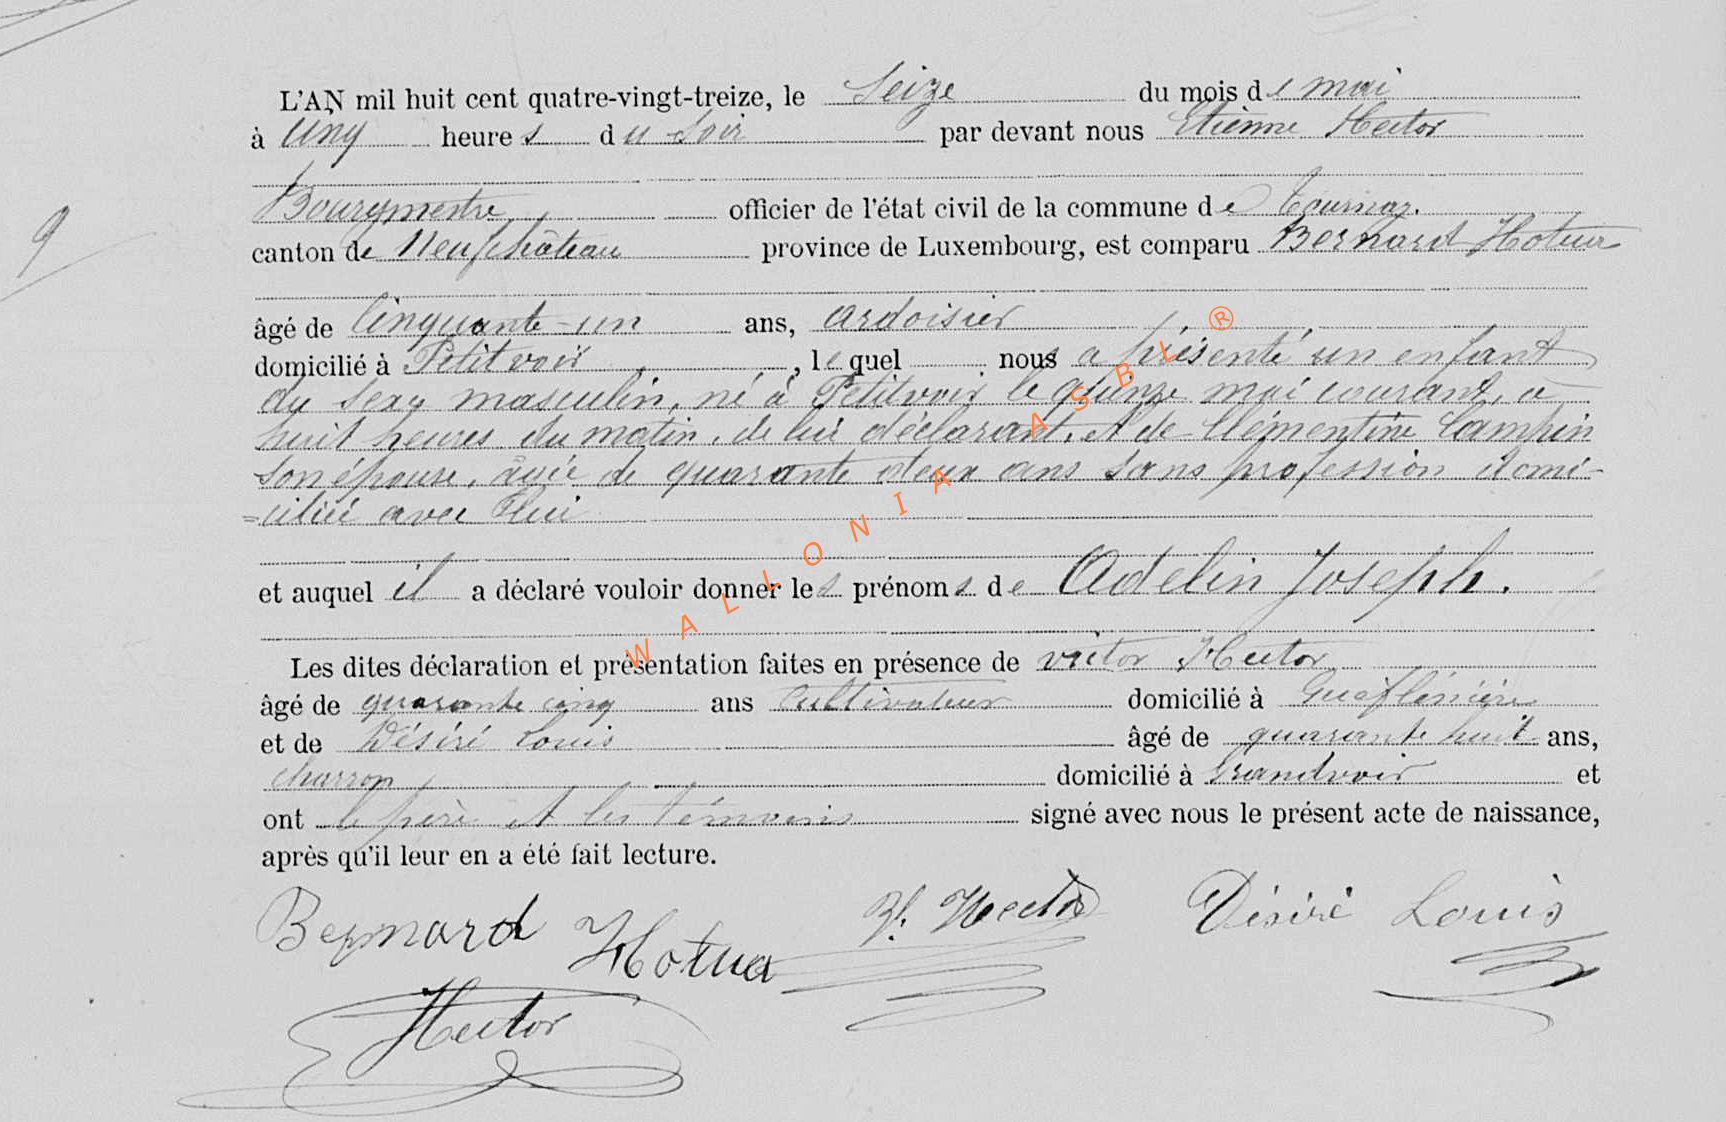 L'AN mil huit cent quatre-vingt-treize, le Seize du mois de mai
à cinq heures du soir par devant nous Etienne Hector
Bourgmestre, officier de l'état civil de la commune de Tournay.
9
canton de Neufchâteau province de Luxembourg, est comparu Bernard Hotua
âgé de Cinquante-un ans, ardoisier
domicilié à Petitvoir, lequel nous a présenté un enfant
du sexe masculin, né à Petitvoir le quinze mai courant, à
huit heures du matin, de lui déclarant, et de Clémentine Campin
son épouse, âgée de quarante deux ans sans profession domi-
=ciliée avec lui
et auquel il a déclaré vouloir donner les prénoms de Adelin Joseph.
Les dites déclaration et présentation faites en présence de victor Hector,
âgé de quarante cinq ans Cultivateur domicilié à
et de Désiré Louis âgé de quarante huit ans,
charron domicilié à Grandvoir et
ont le père et les témoins signé avec nous le présent acte de naissance,
après qu'il leur en a été fait lecture.
Bernard Hotua V. Hector Désiré Louis
Hector
WALLONIA ASBL ®